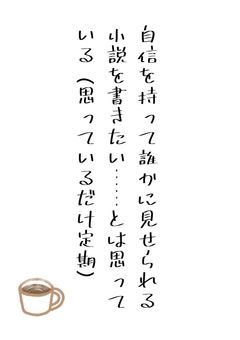 自信を持って誰かに見せられる
小説を書きたい……とは思って
いる（思っているだけ定期）